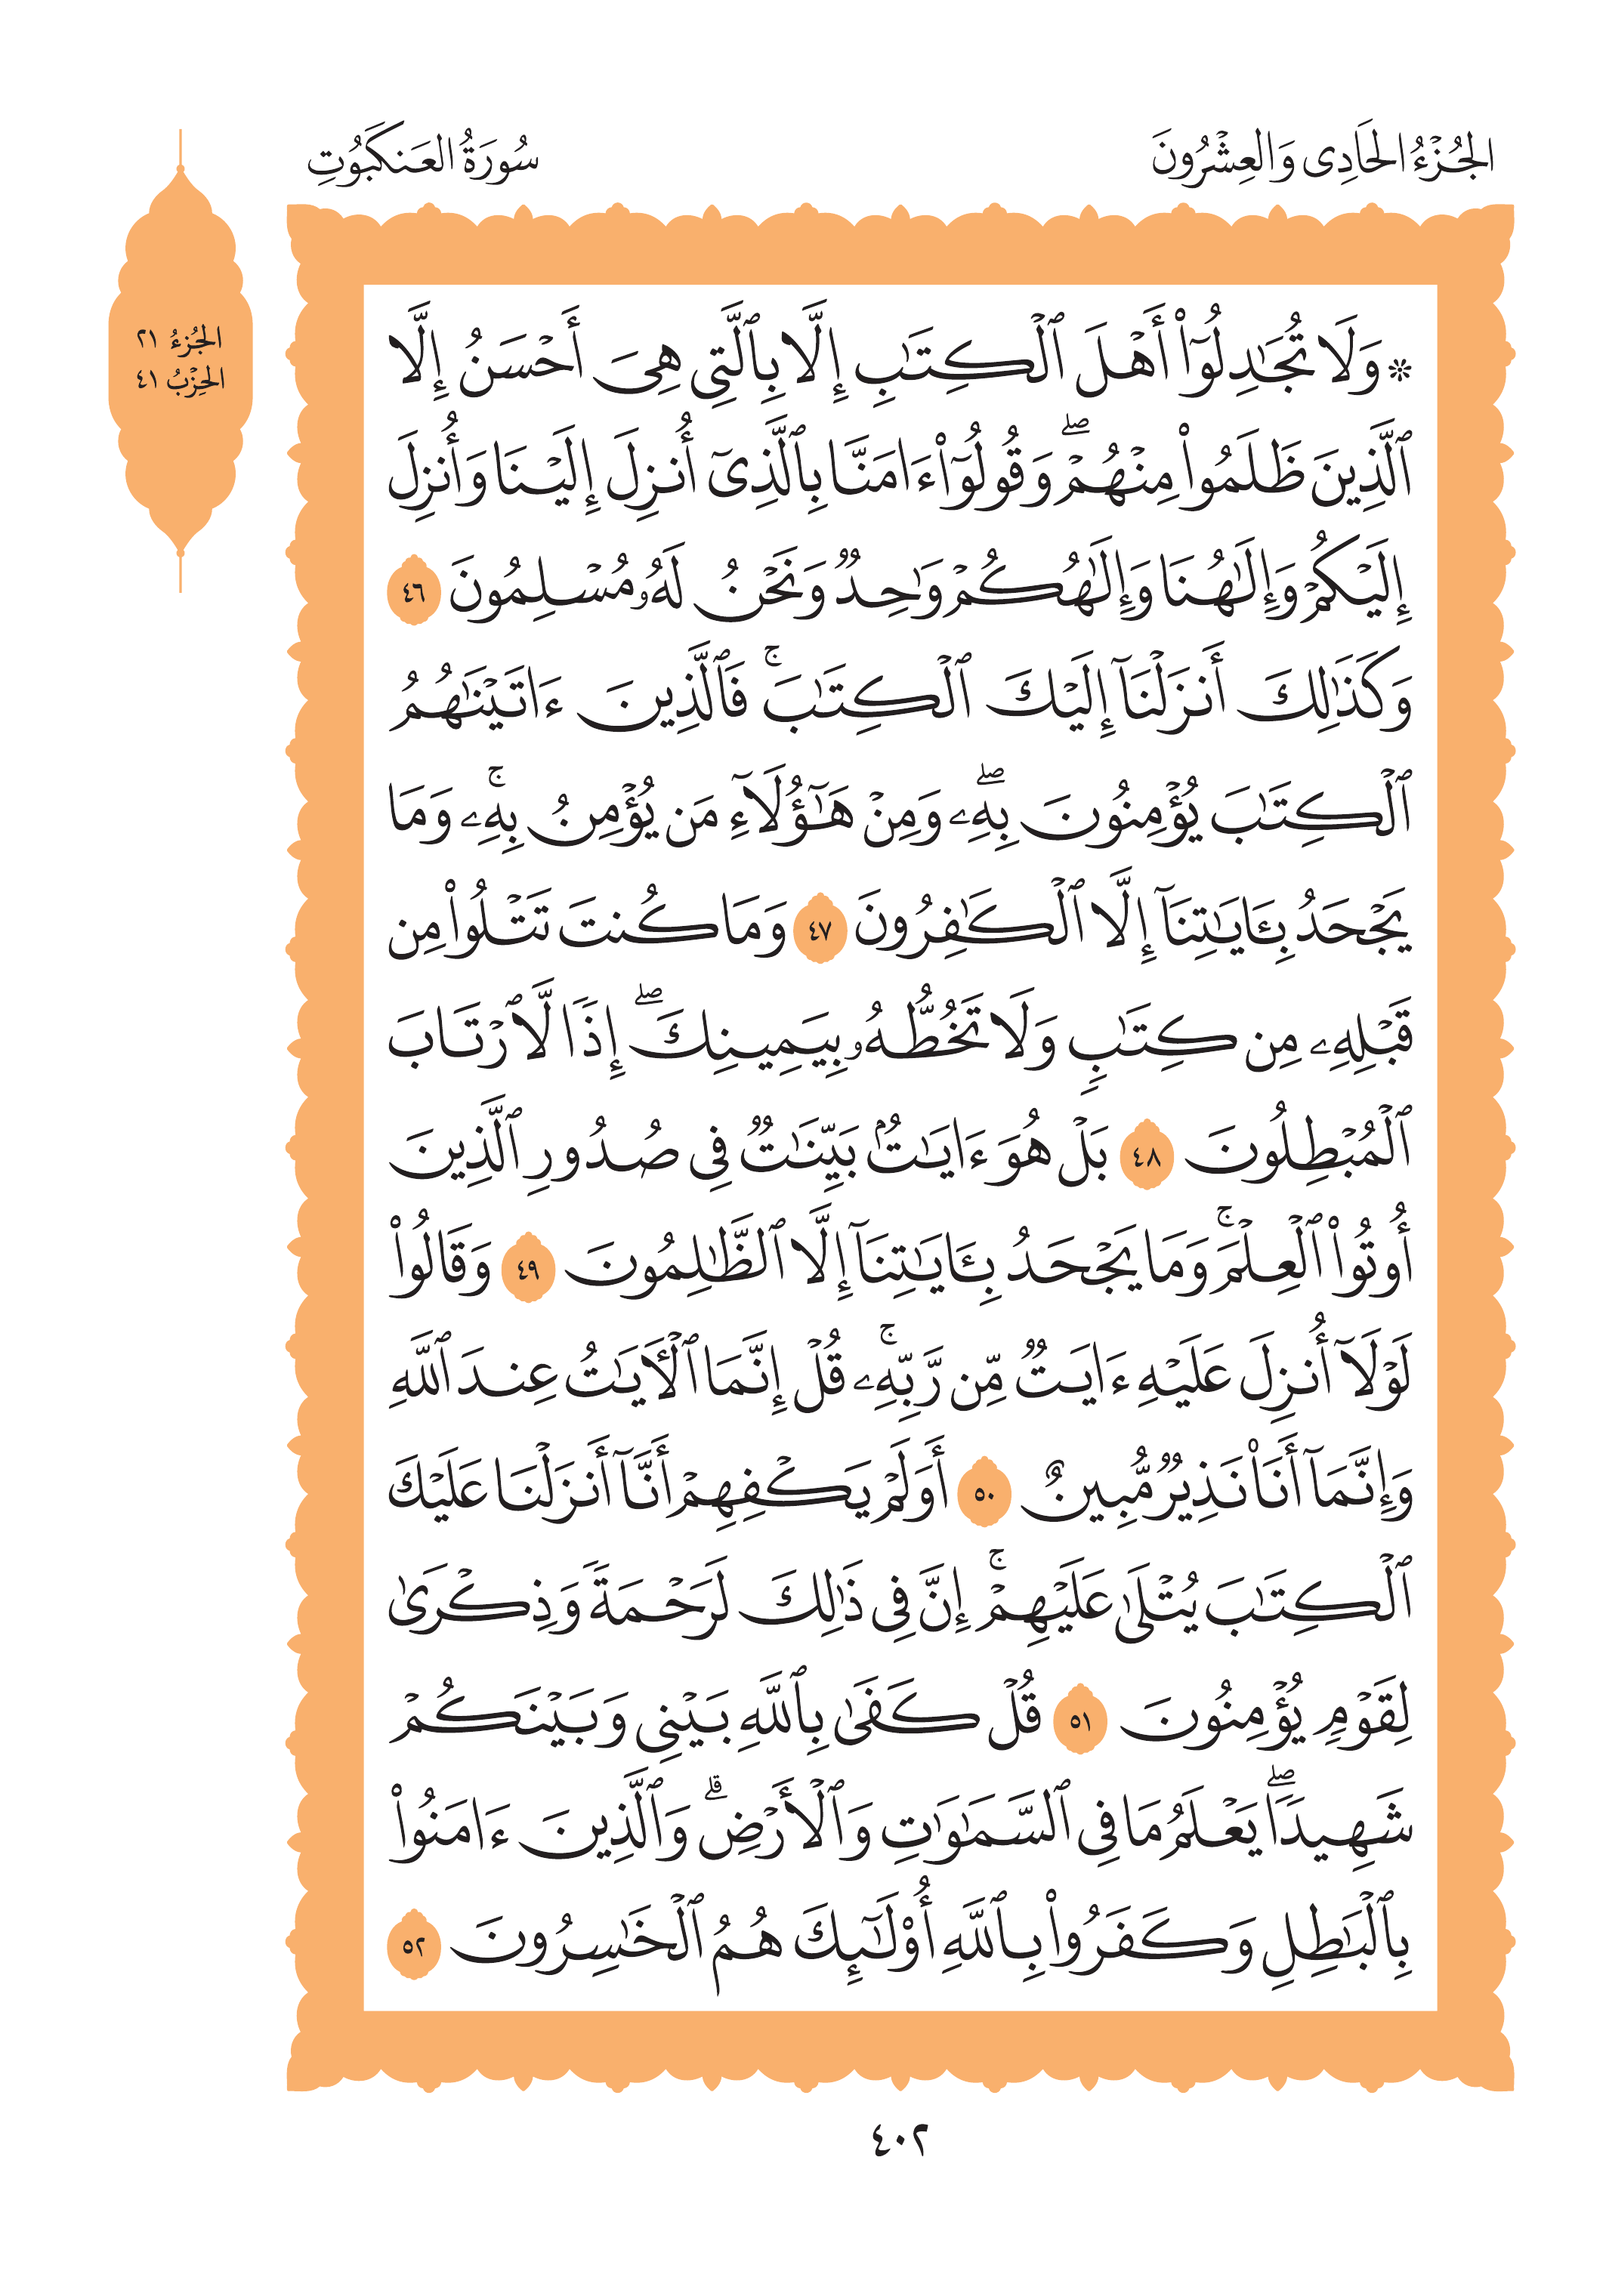 الجُزْءُ الحَادِى وَالعِشْرُونَ
سُورَةُ العَنكَبُوتِ
الجُزءُ ٢١
الحِزْبُ ٤١
۞ وَلَا تُجَٰدِلُوٓا۟ أَهْلَ ٱلْكِتَٰبِ إِلَّا بِٱلَّتِى هِىَ أَحْسَنُ إِلَّا
ٱلَّذِينَ ظَلَمُوا۟ مِنْهُمْ ۖ وَقُولُوٓا۟ ءَامَنَّا بِٱلَّذِىٓ أُنزِلَ إِلَيْنَا وَأُنزِلَ
إِلَيْكُمْ وَإِلَٰهُنَا وَإِلَٰهُكُمْ وَٰحِدٌ وَنَحْنُ لَهُۥ مُسْلِمُونَ ٤٦
وَكَذَٰلِكَ أَنزَلْنَآ إِلَيْكَ ٱلْكِتَٰبَ ۚ فَٱلَّذِينَ ءَاتَيْنَٰهُمُ
ٱلْكِتَٰبَ يُؤْمِنُونَ بِهِۦ ۖ وَمِنْ هَٰٓؤُلَآءِ مَن يُؤْمِنُ بِهِۦ ۚ وَمَا
يَجْحَدُ بِـَٔايَٰتِنَآ إِلَّا ٱلْكَٰفِرُونَ ٤٧ وَمَا كُنتَ تَتْلُوا۟ مِن
قَبْلِهِۦ مِن كِتَٰبٍ وَلَا تَخُطُّهُۥ بِيَمِينِكَ ۖ إِذًا لَّٱرْتَابَ
ٱلْمُبْطِلُونَ ٤٨ بَلْ هُوَ ءَايَٰتٌۢ بَيِّنَٰتٌ فِى صُدُورِ ٱلَّذِينَ
أُوتُوا۟ ٱلْعِلْمَ ۚ وَمَا يَجْحَدُ بِـَٔايَٰتِنَآ إِلَّا ٱلظَّٰلِمُونَ ٤٩ وَقَالُوا۟
لَوْلَآ أُنزِلَ عَلَيْهِ ءَايَٰتٌ مِّن رَّبِّهِۦ ۚ قُلْ إِنَّمَا ٱلْـَٔايَٰتُ عِندَ ٱللَّهِ
وَإِنَّمَآ أَنَا۠ نَذِيرٌ مُّبِينٌ ٥٠ أَوَلَمْ يَكْفِهِمْ أَنَّآ أَنزَلْنَا عَلَيْكَ
ٱلْكِتَٰبَ يُتْلَىٰ عَلَيْهِمْ ۚ إِنَّ فِى ذَٰلِكَ لَرَحْمَةً وَذِكْرَىٰ
لِقَوْمٍ يُؤْمِنُونَ ٥١ قُلْ كَفَىٰ بِٱللَّهِ بَيْنِى وَبَيْنَكُمْ
شَهِيدًا ۖ يَعْلَمُ مَا فِى ٱلسَّمَٰوَٰتِ وَٱلْأَرْضِ ۗ وَٱلَّذِينَ ءَامَنُوا۟
بِٱلْبَٰطِلِ وَكَفَرُوا۟ بِٱللَّهِ أُو۟لَٰٓئِكَ هُمُ ٱلْخَٰسِرُونَ ٥٢
٤٠٢